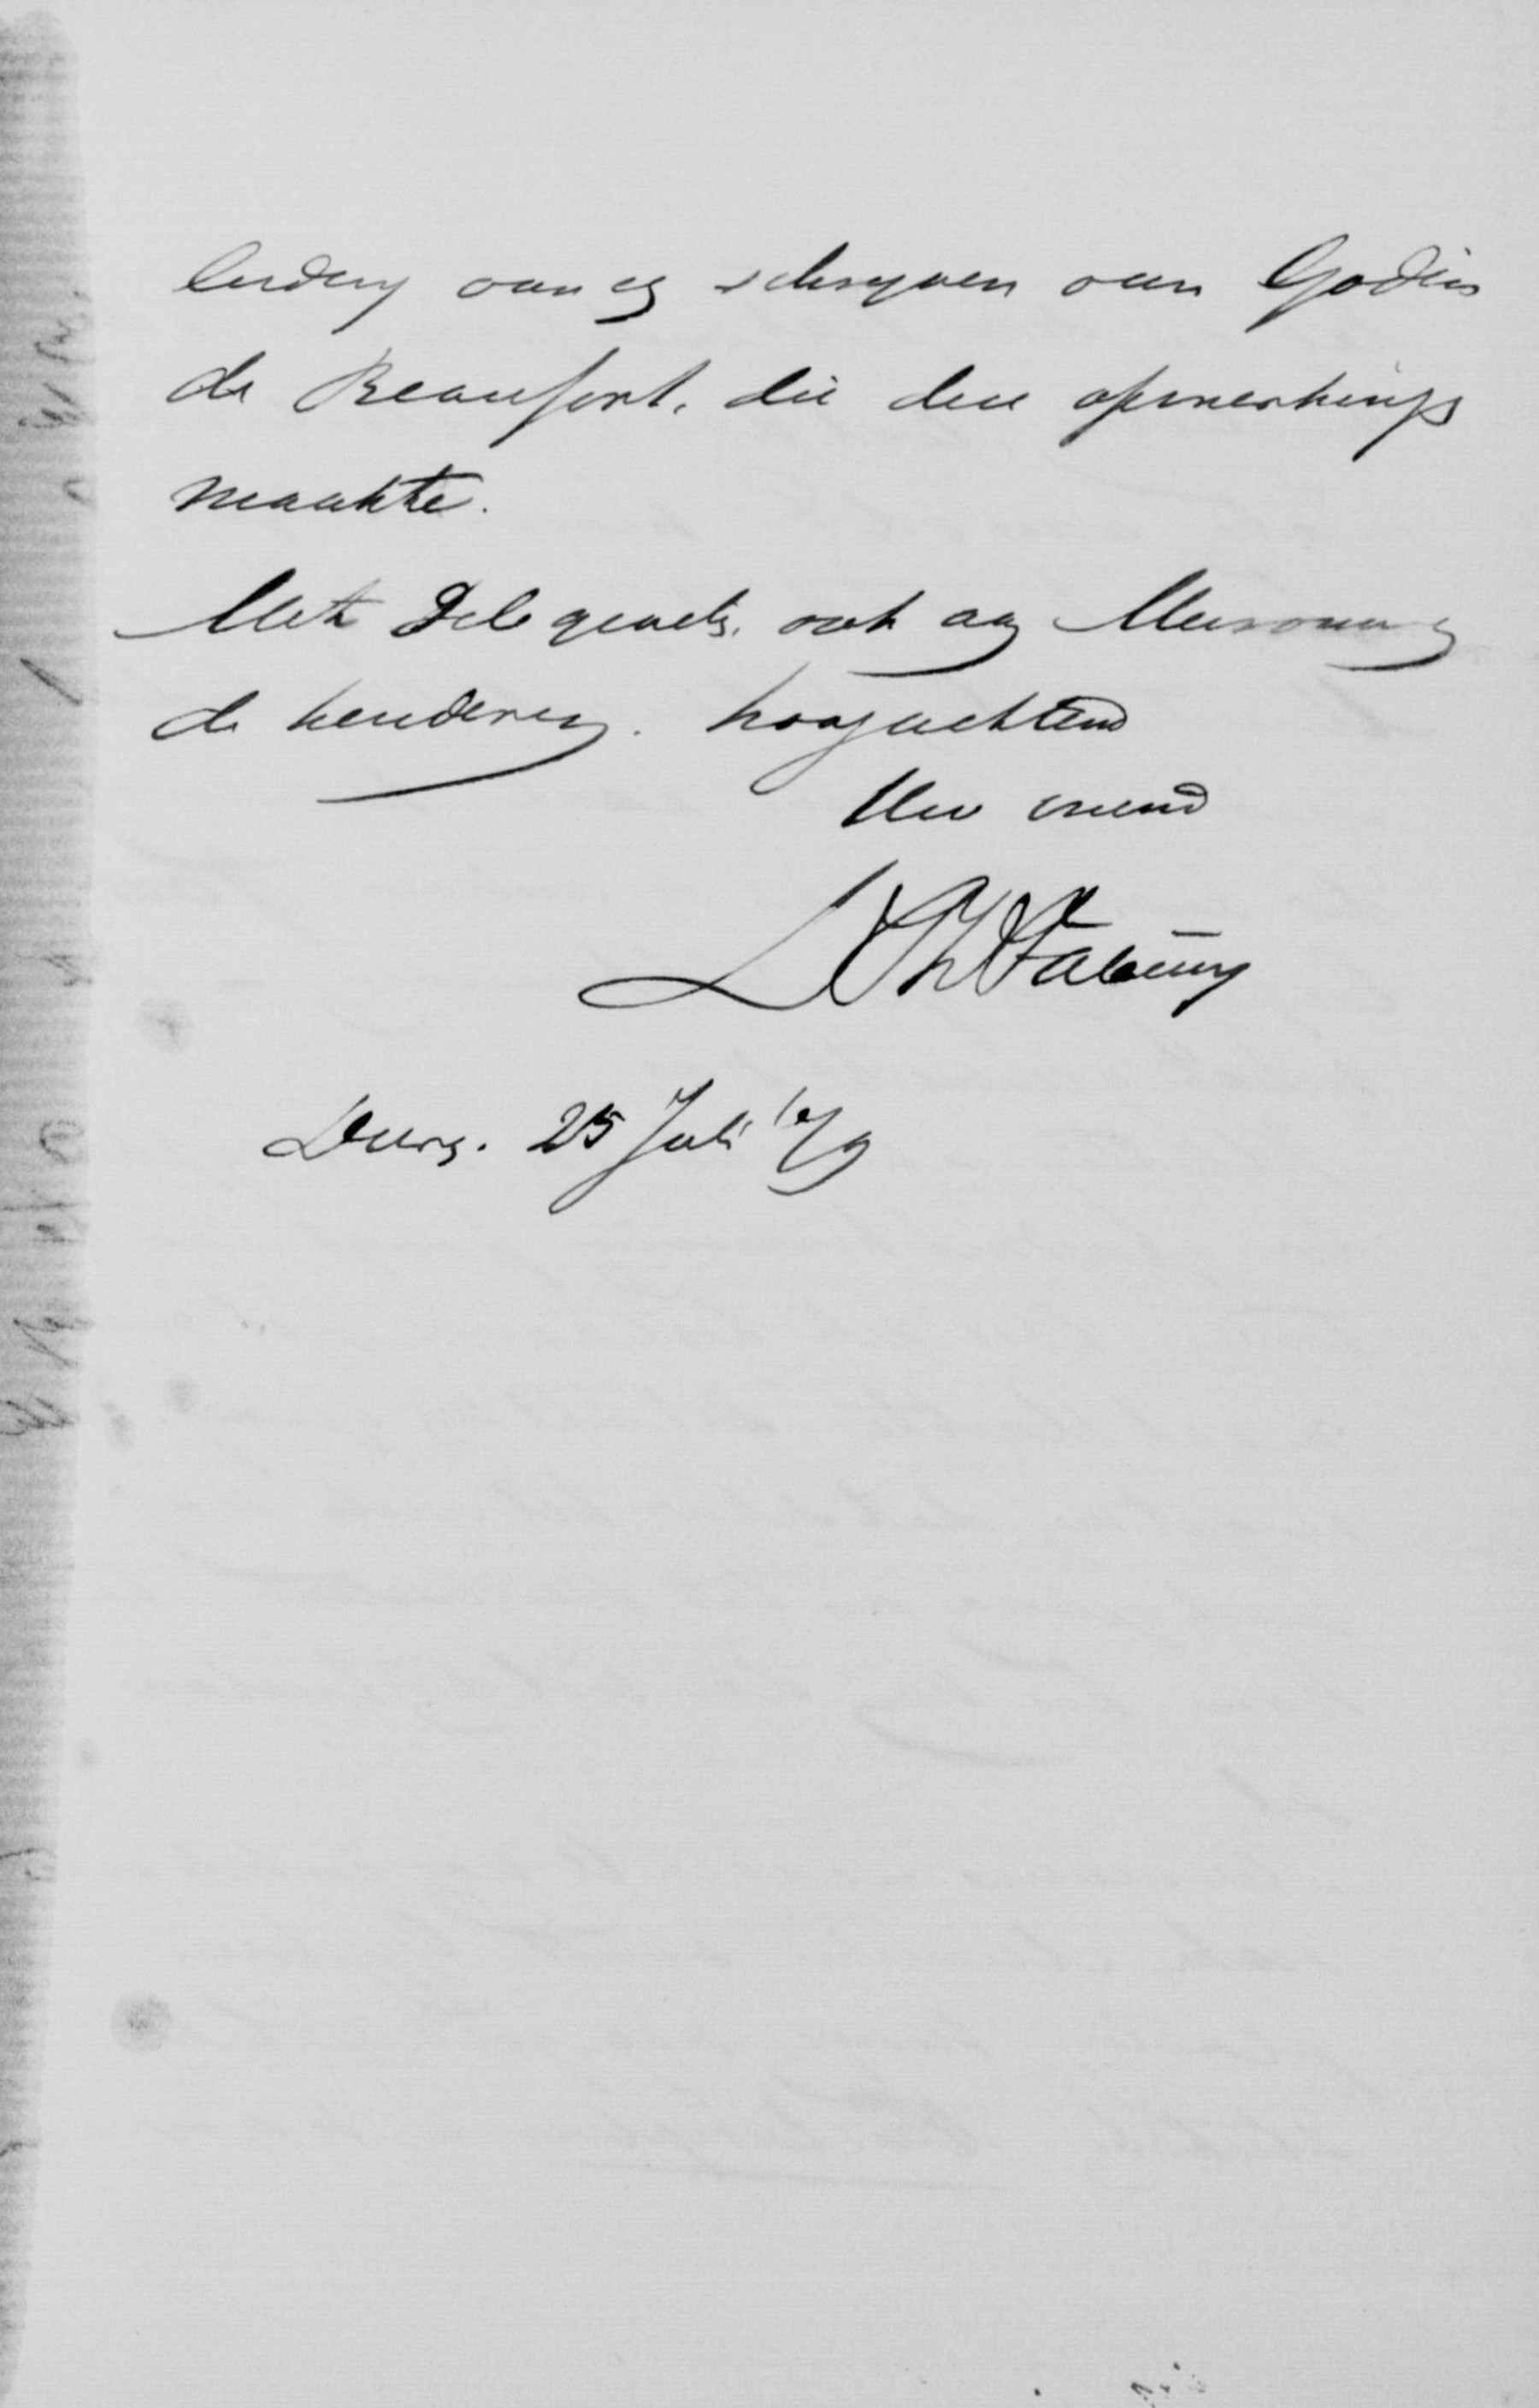 leiding van een schrijven van Godin
de Beaufort, die deze opmerkings
maakte.
Met beleefde groets, ook aan Mevrouw en
de kinderen. hoogachtend
Uw vriend
25 Juli '79